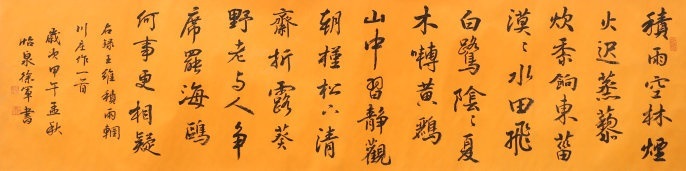 積雨空林煙
火迟蒸藜
炊黍餉東菑
漠〻水田飛
白鷺陰〻夏
木囀黃鸝
山中習靜觀
朝槿松下清
齋折露葵
野老与人爭
席罷海鷗
何事更相疑
右録王維積雨輞
川庄作一首
歲甲午孟秋
怡泉徐軍書